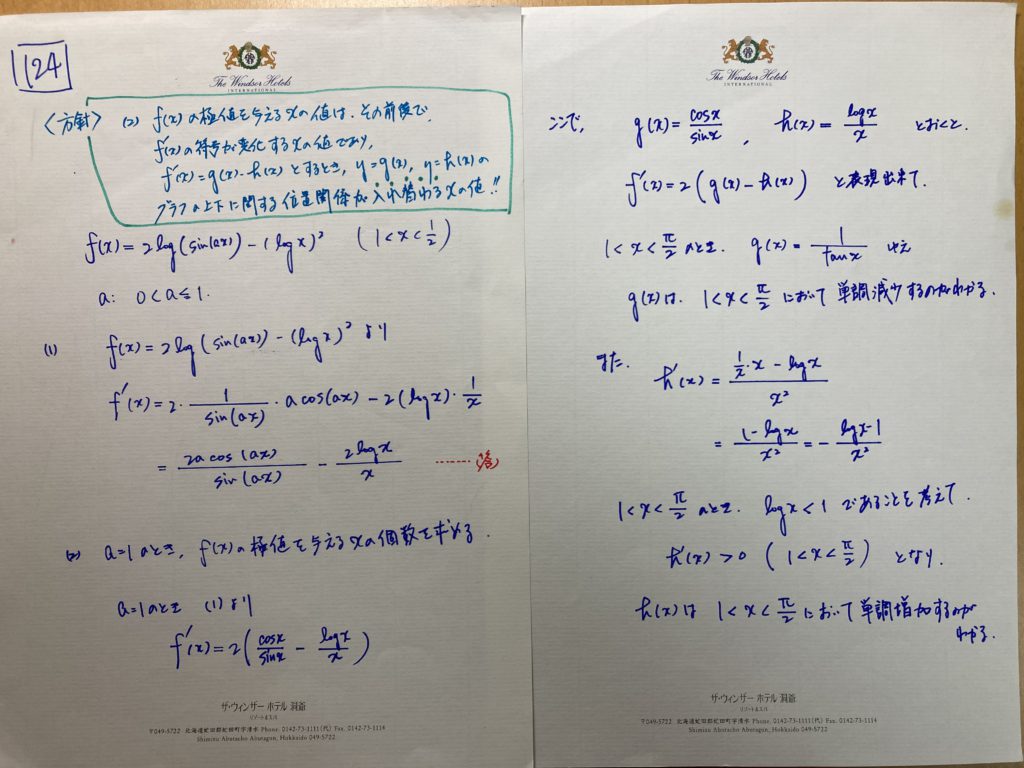 124
The Windsor Hotels
INTERNATIONAL
<方針> (2) f(x)の極値を与えるxの値は、その前後で、
f'(x)の符号が変化するxの値であり、
f'(x)=g(x)-h(x)とするとき、y=g(x), y=h(x)の
グラフの上下に関する位置関係が入れ替わるxの値!!
f(x)=2log(sin(ax))-(logx)² (1<x<1/2)
a: 0<a≦1.
(1) f(x)=2log(sin(ax))-(logx)² より
f'(x)=2・1/sin(ax)・a cos(ax)-2(logx)・1/x
=2a cos(ax)/sin(ax) - 2logx/x ……(答)
(2) a=1のとき、f(x)の極値を与えるxの個数を求める.
a=1のとき (1)より
f'(x)=2(cosx/sinx - logx/x)
ザ・ウィンザー ホテル 洞爺
リゾート&スパ
〒049-5722 北海道虻田郡虻田町字清水 Phone. 0142-73-1111(代) Fax. 0142-73-1114
Shimizu Abutacho Abutagun, Hokkaido 049-5722
The Windsor Hotels
INTERNATIONAL
ここで、 g(x)=cosx/sinx , h(x)=logx/x とおくと、
f'(x)=2(g(x)-h(x)) と表現出来て、
1<x<π/2のとき、g(x)=1/tanx ゆえ
g(x)は、1<x<π/2において単調減少するのがわかる.
また、
h'(x)=(1/x・x-logx)/x²
=(1-logx)/x²=-(logx-1)/x²
1<x<π/2のとき、logx<1であることを考えて、
h'(x)>0 (1<x<π/2) となり、
h(x)は 1<x<π/2において単調増加するのが
わかる.
ザ・ウィンザー ホテル 洞爺
リゾート&スパ
〒049-5722 北海道虻田郡虻田町字清水 Phone. 0142-73-1111(代) Fax. 0142-73-1114
Shimizu Abutacho Abutagun, Hokkaido 049-5722